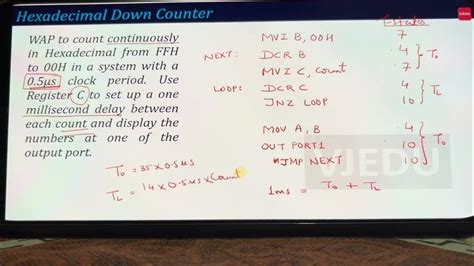 Hexadecimal Down Counter
WAP to count continuously
in Hexadecimal from FFH
to 00H in a system with a
0.5µs clock period. Use
Register C to set up a one
millisecond delay between
each count and display the
numbers at one of the
output port.
T₀ = 35 × 0.5µs
T_L = 14 × 0.5µs × Count
T-states
MVI B, 00H 7
NEXT: DCR B 4
MVI C, Count 7 T₀
LOOP: DCR C 4
JNZ LOOP 10 T_L
MOV A, B 4
OUT PORT1 10
JMP NEXT 10 T₀
1ms = T₀ + T_L
VJEDU